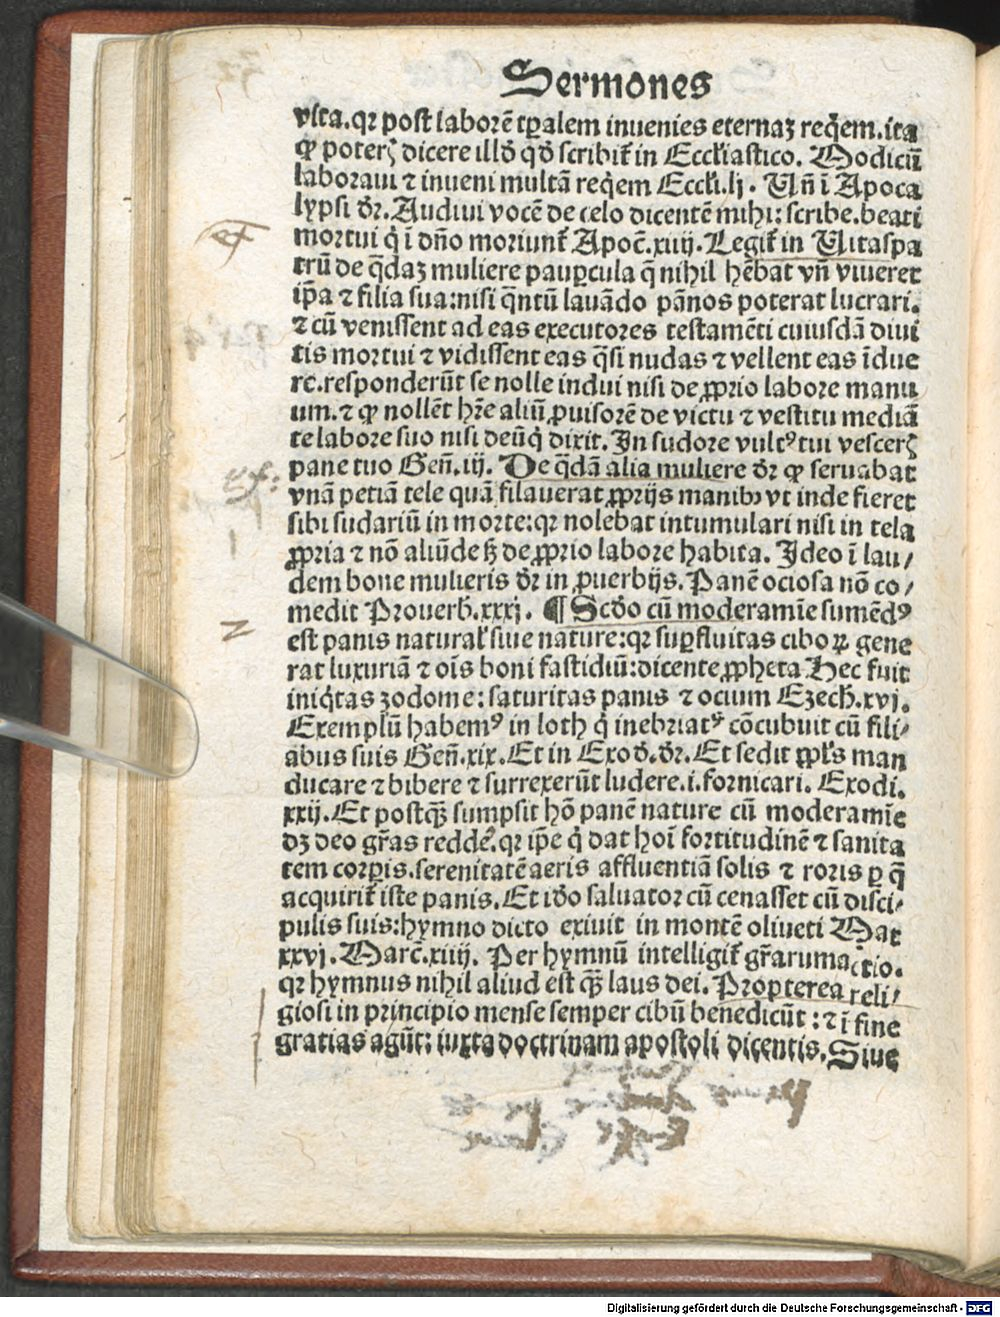 Sermones
vita.qꝛ post laborē tp̄alem inuenies eternaꝫ req̇em.ita
ꝙ poterꝭ dicere illđ qđ scribit᷑ in Eccl̓iastico. Modicū
laboraui ⁊ inueni multā req̇em Eccl̓i.lj. Vn̄ ī Apoca
lypsi dr̄. Audiui vocē de celo dicentē mihi: scribe.beati
mortui q̇ ī dn̄o moriunt᷑ Apoc̄.xiiij. Legit᷑ in Vitaspa
trū de q̄daꝫ muliere pauꝑcula q̄ nihil hēbat vn̄ viueret
ip̄a ⁊ filia sua:nisi q̄ntū lauādo pānos poterat lucrari.
⁊ cū venissent ad eas executores testamēti cuiusdā diui
tis mortui ⁊ vidissent eas q̄si nudas ⁊ vellent eas īdue
re.responderūt se nolle indui nisi de ꝓprio labore manu
um.⁊ ꝙ nollēt hr̄e aliū ꝓuisorē de victu ⁊ vestitu mediā
te labore suo nisi deū q̇ dixit. In sudore vultꝰ tui vescerꝭ
pane tuo Gen̄.iij. De q̄dā alia muliere dr̄ ꝙ seruabat
vnā petiā tele quā filauerat ꝓprijs manibꝰ vt inde fieret
sibi sudariū in morte:qꝛ nolebat intumulari nisi in tela
ꝓpria ⁊ nō aliūde sꝫ de ꝓprio labore habita. Ideo ī lau/
dem bone mulieris dr̄ in ꝓuerbijs. Panē ociosa nō co/
medit Prouerb̄.xxxj. ¶ Scđo cū moderamīe sumēdꝰ
est panis natural̓ siue nature:qꝛ suꝑfluitas ciboꝝ gene
rat luxuriā ⁊ oīs boni fastidiū:dicente ꝓpheta Hec fuit
iniq̇tas zodome: saturitas panis ⁊ ocium Ezech̄.xvj.
Exemplū habemꝰ in loth q̇ inebriatꝰ cōcubuit cū fili/
abus suis Gen̄.xix. Et in Exođ.dr̄. Et sedit ppl̓s man
ducare ⁊ bibere ⁊ surrexerūt ludere.i.fornicari. Exodi.
xxij. Et postqꝫ̄ sumpsit hō panē nature cū moderamīe
dꝫ deo gr̄as redde᷑.qꝛ ip̄e q̇ dat hoī fortitudinē ⁊ sanita
tem corꝑis.serenitatē aeris affluentiā solis ⁊ roris ꝑ q̄
acquirit᷑ iste panis. Et iđo saluator cū cenasset cū disci/
pulis suis:hymno dicto exiuit in montē oliueti Mat
xxvj. Marc̄.xiiij. Per hymnū intelligit᷑ gr̄arum actio.
qꝛ hymnus nihil aliud est qꝫ̄ laus dei. Propterea reli/
giosi in principio mense semper cibū benedicūt : ⁊ ī fine
gratias agūt: iuxta doctrinam apostoli dicentis. Siue
2
Digitalisierung gefördert durch die Deutsche Forschungsgemeinschaft - DFG